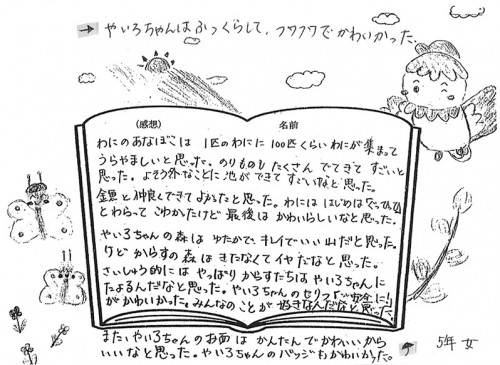 → やいろちゃんはふっくらして、フワフワでかわいかった。
(感想) 名前
わにのあなぼこは 1匹のわにに100匹くらいわにが集まって
うらやましいと思った。のりものもたくさんでてきてすごいと
思った。よそう外なことに池ができてすごいなと思った。
と仲良くできてよかったと思った。わにははじめは
とわらってこわかったけど最後はかわいらしいなと思った。
やいろちゃんの森はゆたかで、キレイでいい山だと思った。
けどからすの森はきたなくてイヤだなと思った。
さいしゅう的にはやっぱりからすたちはやいろちゃんに
たよるんだなと思った。やいろちゃんのセリフ
がかわいかった。みんなのことが好きなんだなと思った。
また、やいろちゃんのお面はかんたんでかわいいから
いいなと思った。やいろちゃんのバッジもかわいかった。
5年 女